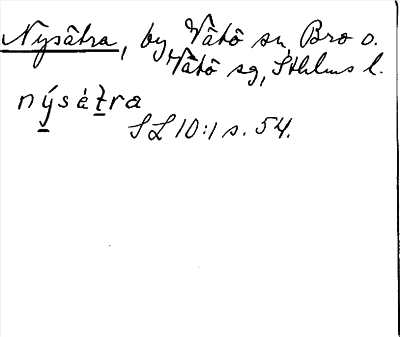 Nysätra, by, Vätö sn, Bro o.
Vätö sg, Sthlms l.
nýsä̀tra
SL 10:1 s. 54.